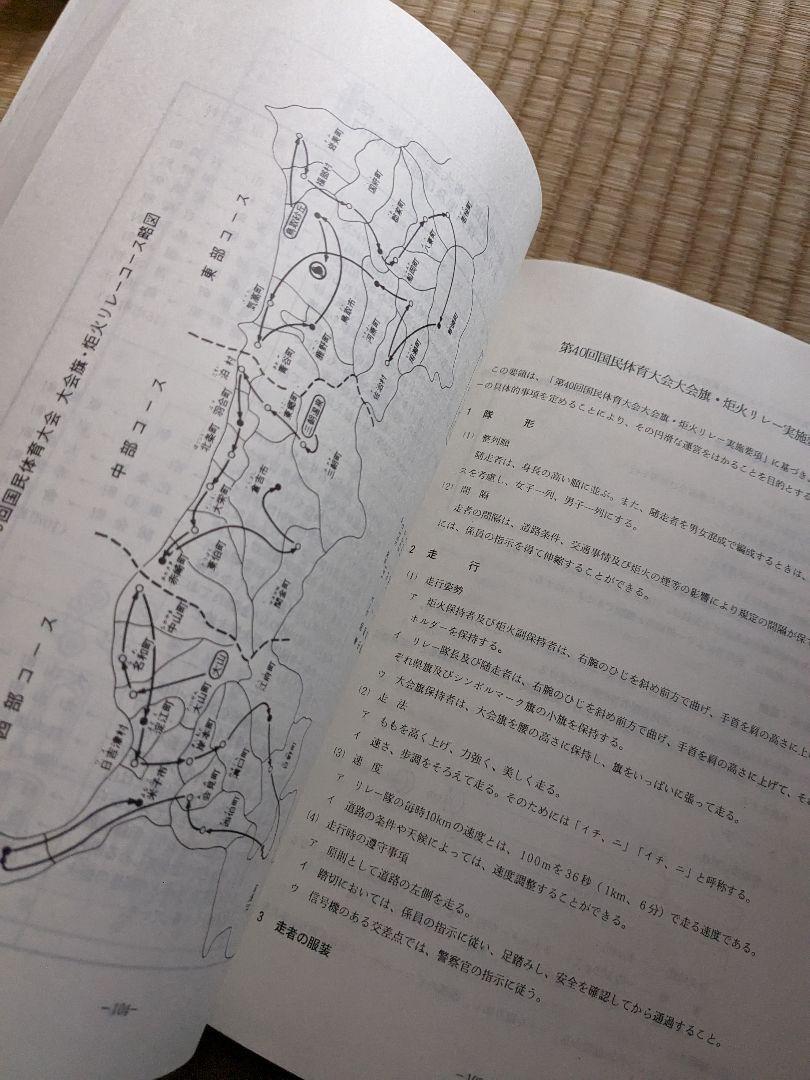 回国民体育大会 大会旗・炬火リレーコース略図
東部コース
中部コース
西部コース
岩美町
福部村
国府町
鳥取砂丘
郡家町
八東町
船岡町
気高町
鳥取市
河原町
鹿野町
青谷町
佐治村
泊村
羽合町
東郷町
三朝温泉
北条町
三朝町
倉吉市
大栄町
東伯町
赤碕町
関金町
中山町
名和町
大山
大山町
淀江町
江府町
日吉津村
岸本町
溝口町
米子市
会見町
西伯町
第40回国民体育大会大会旗・炬火リレー実施
この要領は、「第40回国民体育大会大会旗・炬火リレー実施要項」に基づき、
ーの具体的事項を定めることにより、その円滑な運営をはかることを目的とする
1 隊形
(1) 整列順
随走者は、身長の高い順に並ぶ。また、随走者を男女混成で編成するときは、
スを考慮し、女子一列、男子一列にする。
(2) 間隔
走者の間隔は、道路条件、交通事情及び炬火の煙等の影響により規定の間隔が保て
には、係員の指示を得て伸縮することができる。
2 走行
(1) 走行姿勢
ア 炬火保持者及び炬火副保持者は、右腕のひじを斜め前方で曲げ、手首を肩の高さに上
ホルダーを保持する。
イ リレー隊長及び随走者は、右腕のひじを斜め前方で曲げ、手首を肩の高さに上げて、そ
ぞれ県旗及びシンボルマーク旗の小旗を保持する。
ウ 大会旗保持者は、大会旗を腰の高さに保持し、旗をいっぱいに張って走る。
(2) 走法
ア ももを高く上げ、力強く、美しく走る。
イ 速さ、歩調をそろえて走る。そのためには「イチ、ニ」「イチ、ニ」と呼称する。
(3) 速度
ア リレー隊の毎時10kmの速度とは、100mを36秒（1km、6分）で走る速度である。
イ 道路の条件や天候によっては、速度調整することができる。
(4) 走行時の遵守事項
ア 原則として道路の左側を走る。
イ 踏切においては、係員の指示に従い、足踏みし、安全を確認してから通過すること。
ウ 信号機のある交差点では、警察官の指示に従う。
3 走者の服装